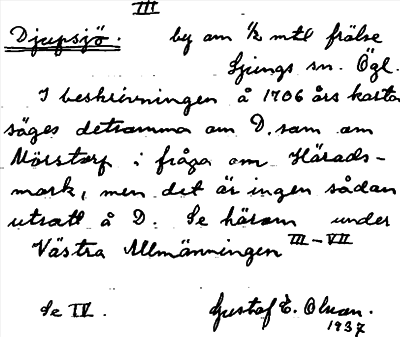 III
Djupsjö. by om 1/2 mtl frälse
Ljungs sn. Ögl.
I beskrivningen å 1706 års karta
säges detsamma om D. som om
Mörstorp i fråga om Härads-
mark, men det är ingen sådan
utsatt å D. Se härom under
Västra Allmänningen III-VII
Se IV. Gustaf E. Olsson.
1937